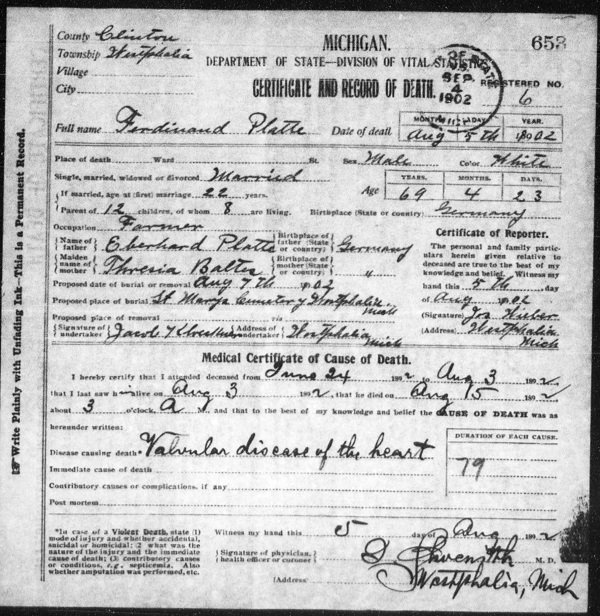 County Clinton
Township Westphalia
Village
City
MICHIGAN.
DEPARTMENT OF STATE—DIVISION OF VITAL STATISTICS
CERTIFICATE AND RECORD OF DEATH.
653
SEP. 4 1902
REGISTERED NO.
6
Full name Ferdinand Platte Date of death
MONTH DAY YEAR.
Aug 5th 1902
Place of death Ward St. Sex Male Color White
Single, married, widowed or divorced Married
If married, age at (first) marriage 22 years.
Age
YEARS. MONTHS. DAYS.
69 4 23
Parent of 12 children, of whom 8 are living. Birthplace (State or country) Germany
Occupation Farmer
Name of father Eberhard Platte Birthplace of father (State or country) Germany
Maiden name of mother Thresia Baltes Birthplace of mother (State or country) "
Proposed date of burial or removal Aug 7th 02
Proposed place of burial St Marys Cemetery Westphalia Mich
Proposed place of removal via
Signature of undertaker Jacob Address of undertaker Westphalia Mich
Certificate of Reporter.
The personal and family particulars herein given relative to
deceased are true to the best of my
knowledge and belief. Witness my
hand this 5th day
of Aug 02
(Signature) Jos
(Address) Westphalia
Mich
Medical Certificate of Cause of Death.
I hereby certify that I attended deceased from June 24 1892 to Aug 3 1892,
that I last saw h alive on Aug 3 1892, that he died on Aug 5 1892
about 3 o'clock, A and that to the best of my knowledge and belief the CAUSE OF DEATH was as
hereunder written:
Disease causing death* Valvular disease of the heart
Immediate cause of death
Contributory causes or complications, if any
Post mortem
DURATION OF EACH CAUSE.
79
*In case of a Violent Death, state (1)
mode of injury and whether accidental,
suicidal or homicidal; 2 what was the
nature of the injury and the immediate
cause of death; (3) contributory causes
or conditions, e.g., septicemia. Also
whether amputation was performed, etc.
Witness my hand this 5 day of Aug 1892
Signature of physician, health officer or coroner M.D.
(Address) Westphalia, Mich
Write Plainly with Unfading Ink—This is a Permanent Record.